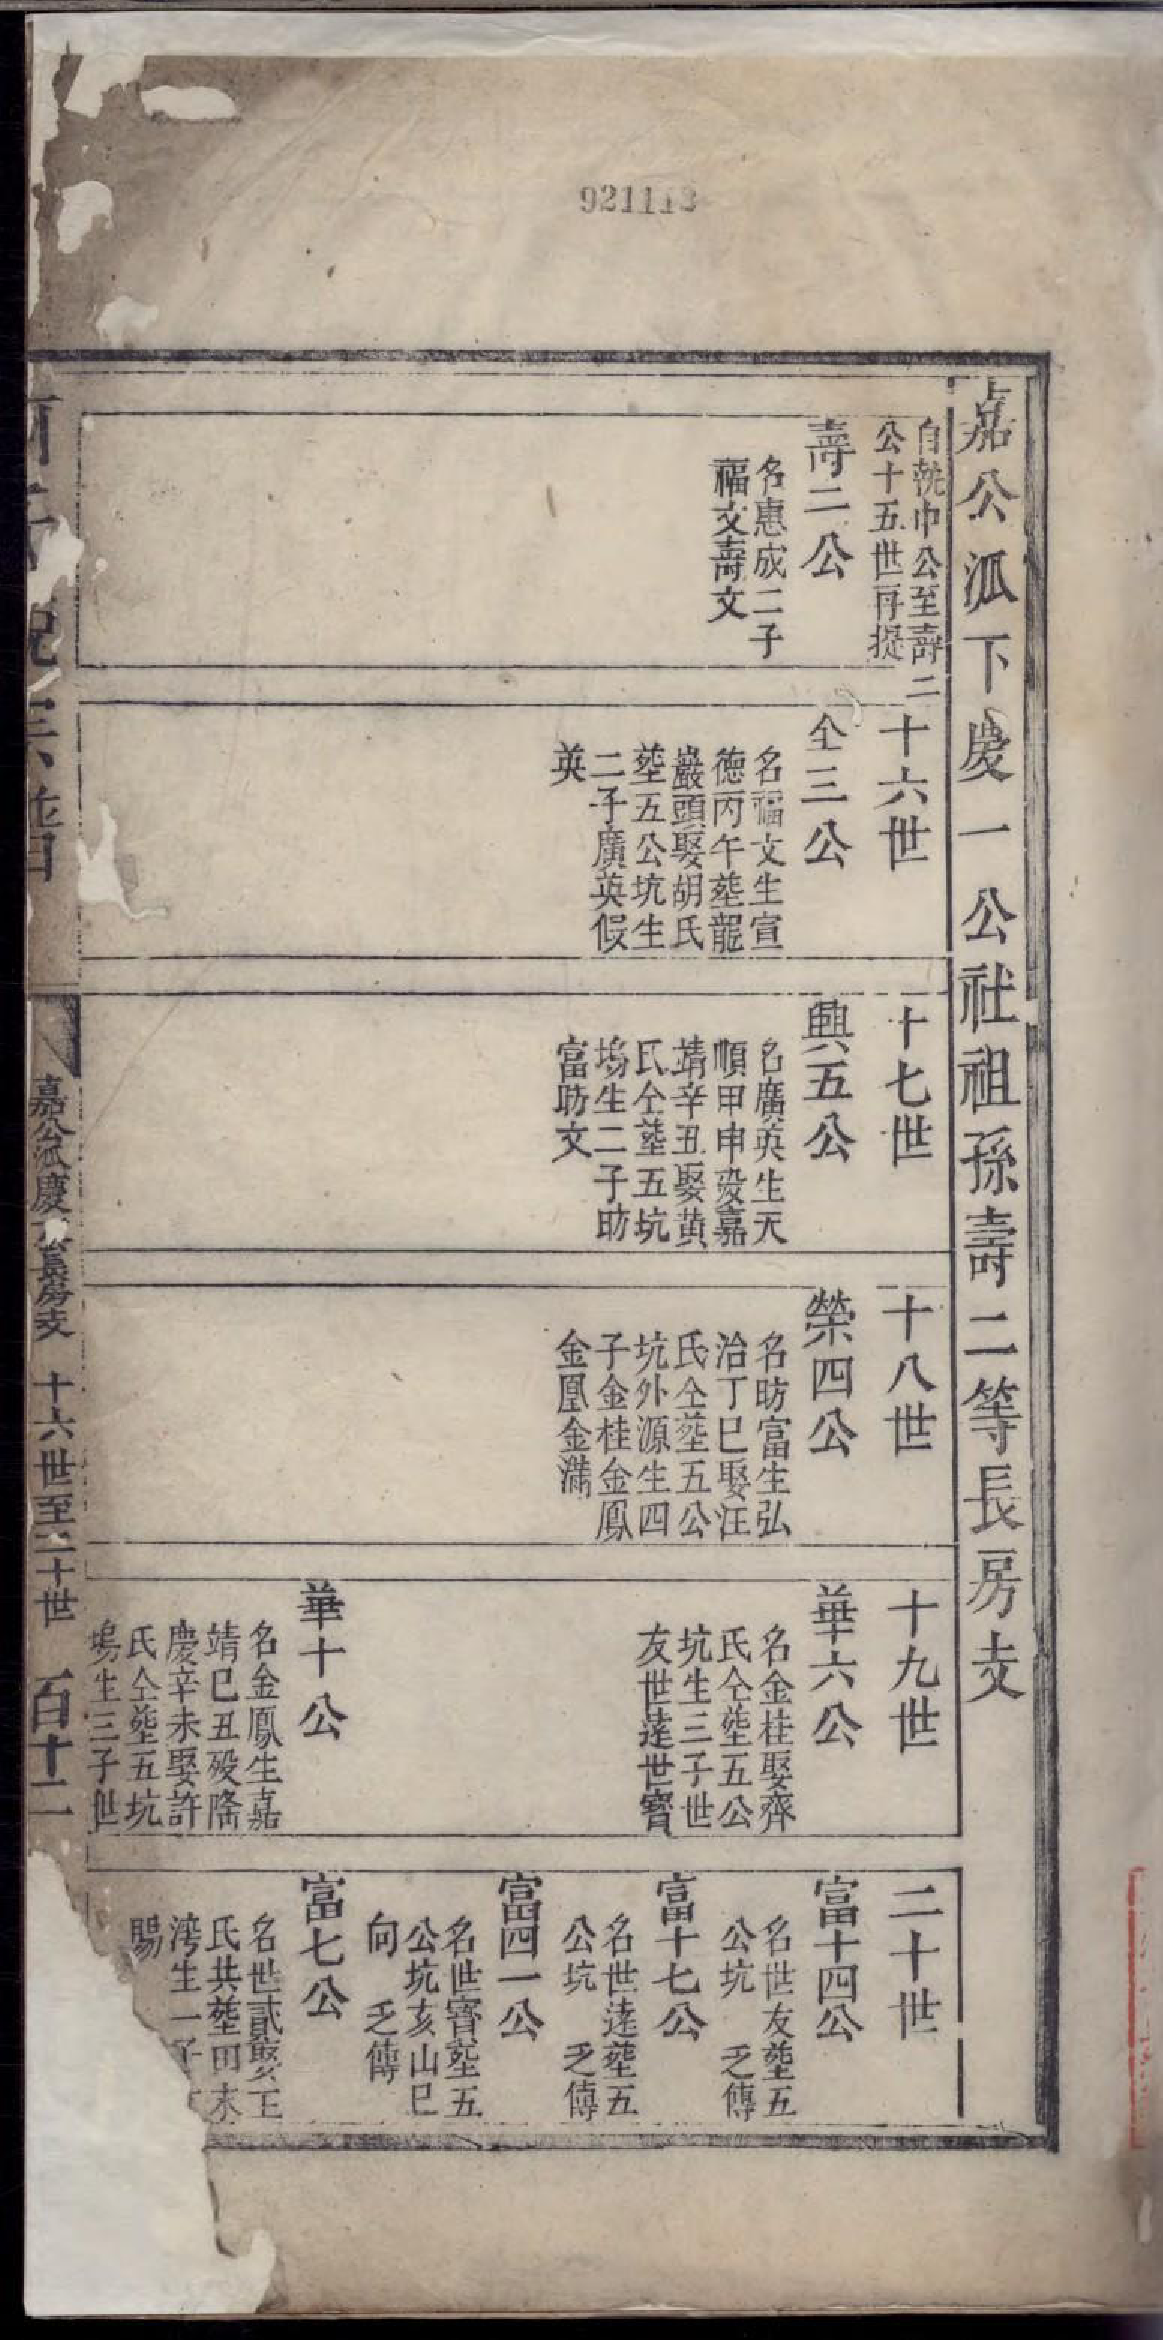 921113
嘉公派下慶一公社祖孫壽二等長房支
自巾公至壽二
公十五世再提
壽二公
名惠成二子
福文壽文
十六世
仝三公
名福文生宣
德丙午塟龍
巖頭娶胡氏
塟五公坑生
二子廣英假
英
十七世
興五公
名廣英生天
順甲申歿嘉
靖辛丑娶黄
氏仝塟五坑
塢生二子昉
富昉文
十八世
榮四公
名昉富生弘
治丁巳娶汪
氏仝塟五公
坑外源生四
子金桂金鳳
金凰金滿
十九世
華六公
名金桂娶齊
氏仝塟五公
坑生三子世
友世逹世寶
華十公
名金鳳生嘉
靖巳丑歿隆
慶辛未娶許
氏仝塟五坑
塢生三子世
二十世
富十四公
名世友塟五
公坑 乏傳
富十七公
名世逹塟五
公坑 乏傳
富四一公
名世寶塟五
公坑亥山巳
向 乏傳
富七公
名世貳娶王
氏共塟田末
灣生一子
賜
世譜
嘉公派慶長房支 十六世至二十世 百十二